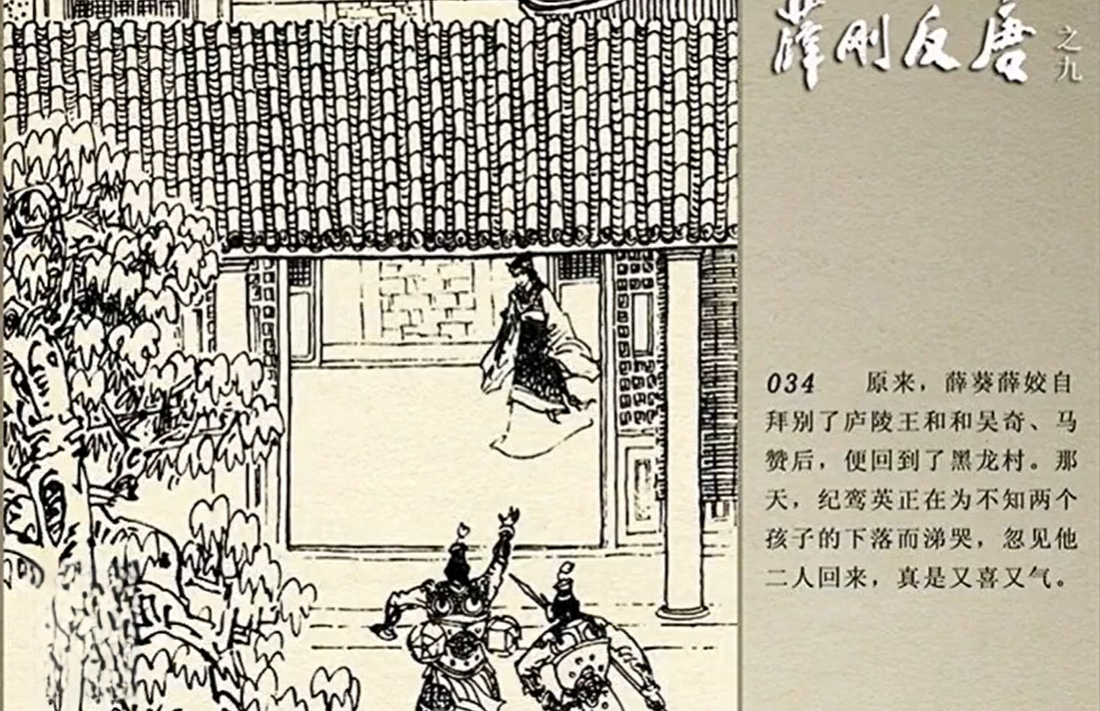 薛刚反唐
之九
034 原来，薛葵薛姣自
拜别了庐陵王和和吴奇、马
赞后，便回到了黑龙村。那
天，纪鸾英正在为不知两个
孩子的下落而涕哭，忽见他
二人回来，真是又喜又气。